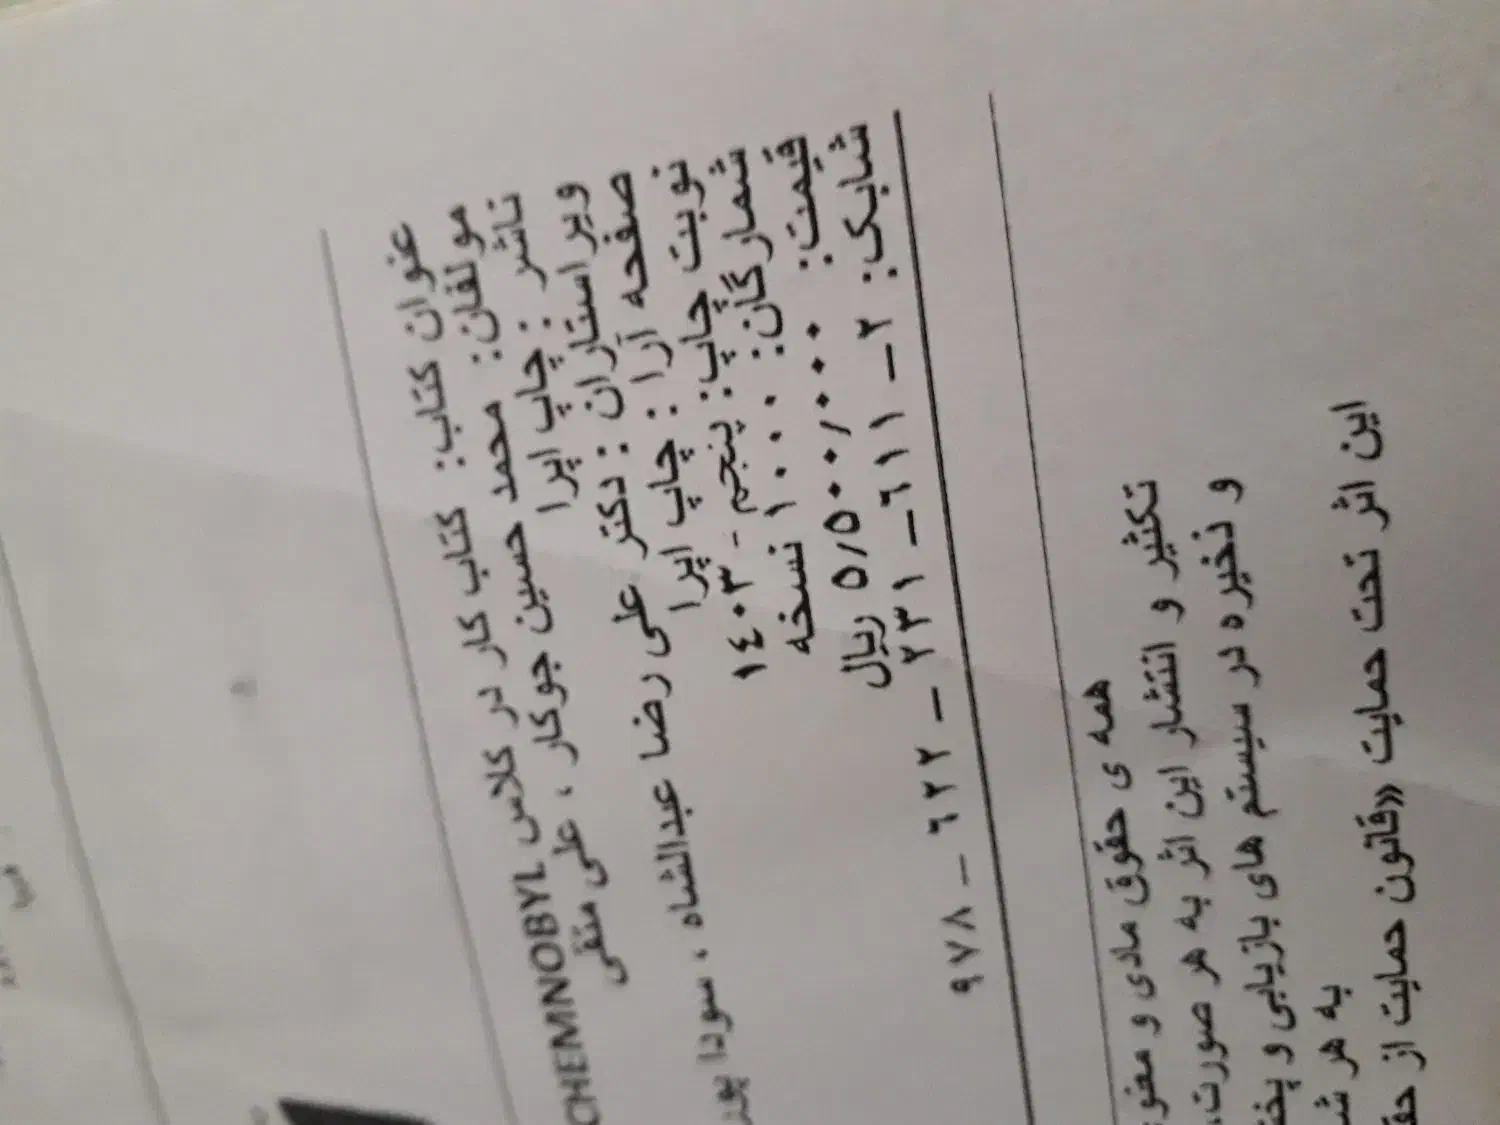 عنوان کتاب: کتاب کار در کلاس CHEMNOBYL
مولفان: محمد حسین جوکار ، علی متقی
ناشر : چاپ اپرا
ویراستاران : دکتر علی رضا عبدالشاه ، سودا
صفحه آرا : چاپ اپرا
نوبت چاپ: پنجم - ۱٤۰۳
شمارگان: ۱۰۰۰ نسخه
قیمت: ۵/۵۰۰/۰۰۰ ریال
شابک: ۲ – ٦۱۱ – ۲۳۱ – ٦۲۲ – ۹۷۸
همه ی حقوق مادی و
تکثیر و انتشار این اثر به هر صورت،
و ذخیره در سیستم های بازیابی و
به هر
این اثر تحت حمایت «قانون حمایت از